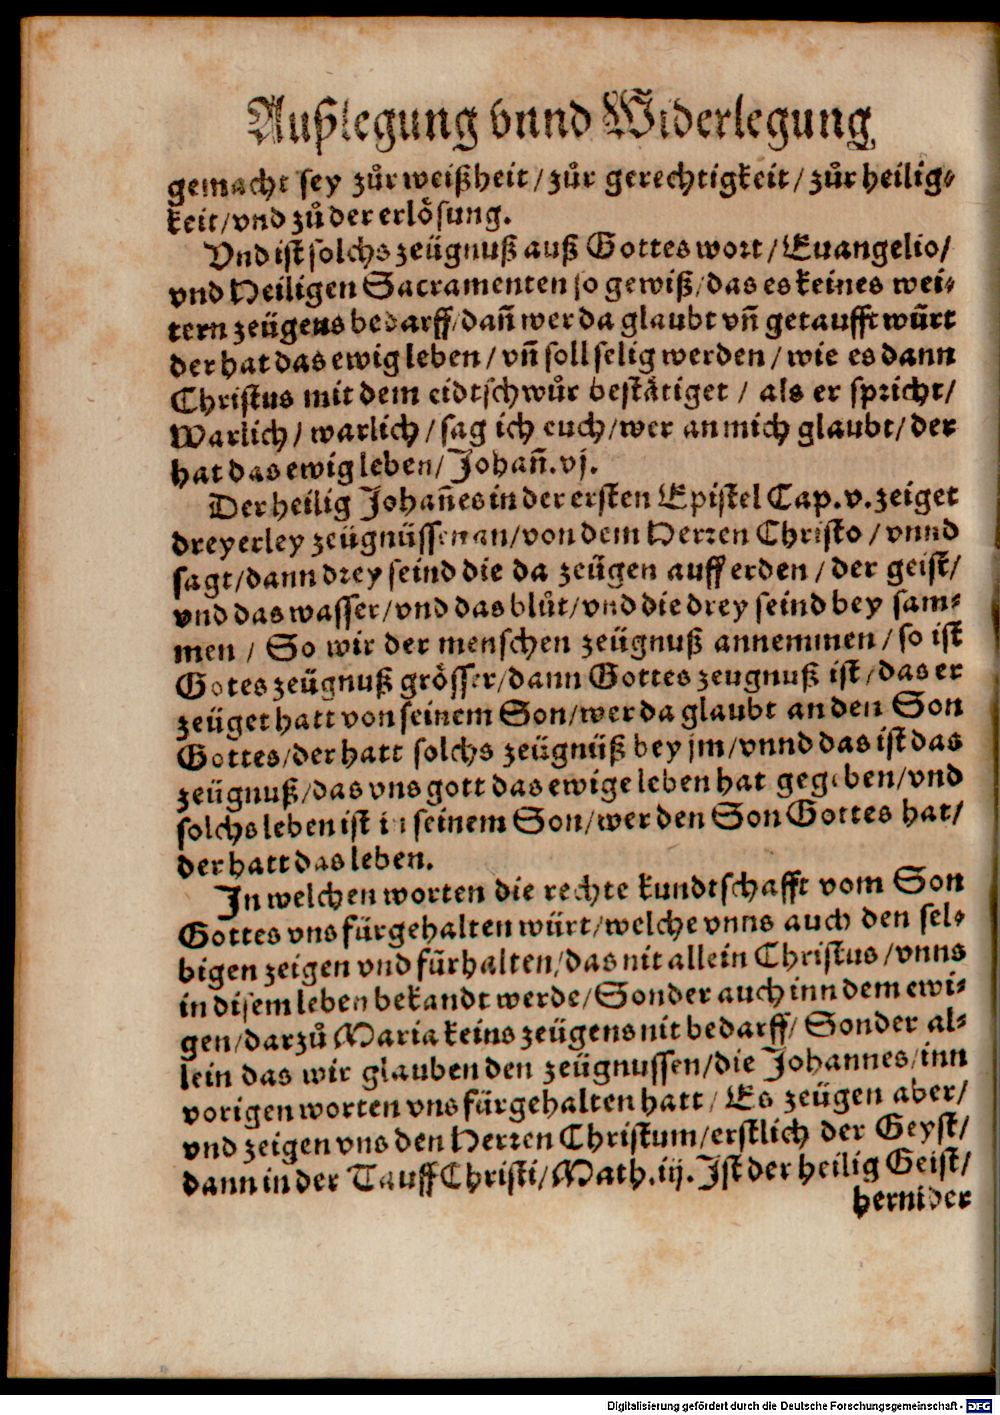 Außlegung vnnd Widerlegung
gemacht sey zůr weißheit/zůr gerechtigkeit/zůr heilig⸗
keit/vnd zů der erlösung.
Vnd ist solchs zeügnuß auß Gottes wort/Euangelio/
vnd Heiligen Sacramenten so gewiß/das es keines wei⸗
tern zeügens bedarff/dañ wer da glaubt vñ getaufft würt
der hat das ewig leben/vñ soll selig werden/wie es dann
Christus mit dem eidtschwůr bestätiget/als er spricht/
Warlich/warlich/sag ich euch/wer an mich glaubt/der
hat das ewig leben/Johañ.vj.
Der heilig Johañes in der ersten Epistel Cap.v.zeiget
dreyerley zeügnüssen an/von dem Herren Christo/vnnd
sagt/dann drey seind die da zeügen auff erden/der geist/
vnd das wasser/vnd das blůt/vnd die drey seind bey sam⸗
men/So wir der menschen zeügnuß annemmen/so ist
Gotes zeügnuß grösser/dann Gottes zeugnuß ist/das er
zeüget hatt von seinem Son/wer da glaubt an den Son
Gottes/der hatt solchs zeügnüß bey jm/vnnd das ist das
zeügnuß/das vns gott das ewige leben hat gegeben/vnd
solchs leben ist in seinem Son/wer den Son Gottes hat/
der hatt das leben.
In welchen worten die rechte kundtschafft vom Son
Gottes vns fürgehalten würt/welche vnns auch den sel⸗
bigen zeigen vnd fürhalten/das nit allein Christus/vnns
in disem leben bekandt werde/Sonder auch inn dem ewi⸗
gen/darzů Maria keins zeügens nit bedarff/Sonder al⸗
lein das wir glauben den zeügnussen/die Johannes/inn
vorigen worten vns fürgehalten hatt/Es zeügen aber/
vnd zeigen vns den Herren Christum/erstlich der Geyst/
dann in der Tauff Christi/Math.iij.Ist der heilig Geist/
hernider
Digitalisierung gefördert durch die Deutsche Forschungsgemeinschaft - DFG